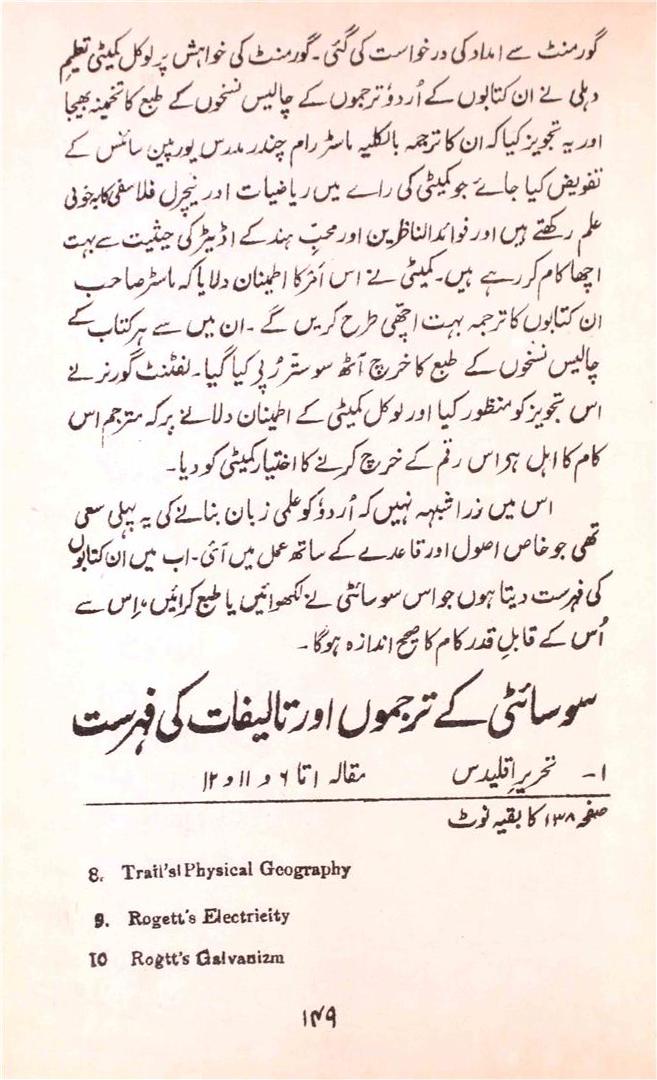 گورمنٹ سے امداد کی درخواست کی گئی۔ گورمنٹ کی خواہش پر لوکل کمیٹی تعلیمِ
دہلی نے ان کتابوں کے اُردو ترجموں کے چالیس نسخوں کے طبع کا تخمینہ بھیجا
اور یہ تجویز کیا کہ ان کا ترجمہ بالکلیہ ماسٹر رام چندر مدرس یورپین سائنس کے
تفویض کیا جائے جو کمیٹی کی رائے میں ریاضیات اور نیچرل فلاسفی کا بہ خوبی
علم رکھتے ہیں اور فوائد الناظرین اور محبِّ ہند کے اڈیٹر کی حیثیت سے بہت
اچھا کام کر رہے ہیں۔ کمیٹی نے اس امر کا اطمینان دلایا کہ ماسٹر صاحب
ان کتابوں کا ترجمہ بہت اچھی طرح کریں گے۔ ان میں سے ہر کتاب کے
چالیس نسخوں کے طبع کا خرچ آٹھ سو ستّر رُپی کیا گیا۔ لفٹننٹ گورنر نے
اس تجویز کو منظور کیا اور لوکل کمیٹی کے اطمینان دلانے پر کہ مترجم اس
کام کا اہل ہر اس رقم کے خرچ کرنے کا اختیار کمیٹی کو دیا۔
اس میں ذرا شبہہ نہیں کہ اُردو کو علمی زبان بنانے کی یہ پہلی سعی
تھی جو خاص اصول اور قاعدے کے ساتھ عمل میں آئی۔ اب میں ان کتابوں
کی فہرست دیتا ہوں جو اس سوسائٹی نے لکھوائیں یا طبع کرائیں، اِس سے
اُس کے قابلِ قدر کام کا صحیح اندازہ ہوگا۔
سوسائٹی کے ترجموں اور تالیفات کی فہرست
۱۔ تحریرِ اقلیدس مقالہ ۱ تا ۶ و ۱۱ و ۱۲
صفحہ ۱۳۸ کا بقیہ نوٹ
8. Trail's Physical Geography
9. Rogett's Electricity
10 Rogtt's Galvanizm
۱۴۹